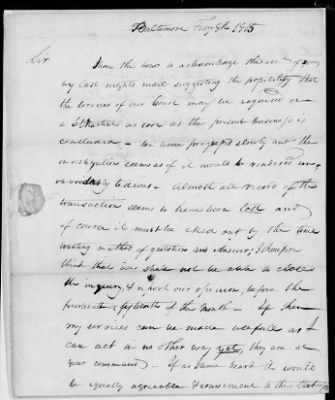 Baltimore Feby 8th 1815
Sir
I have the honor to acknowledge the rect of yours
by last nights mail suggesting the propriety that
the services of our Court may be required on
a C Martial as soon as the present business is
concluded - We have progressed slowly and the
investigation seems as if it would be rendered
unavoidably tedious - Almost all record of the
transaction seems to have been lost and
of course it must be eked out by the time
wasting method of questions and answers; I therefore
think that we shall not be able to close
the inquiry, & report our opinion, before the
fourteenth or fifteenth of the month - If then
my services can be made usefull as I
can act in no other way yet, they are at
your command - If as some heard it would
be equally agreeable & convenient to the